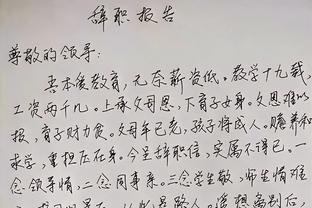 辞职报告
尊敬的领导:
吾本后教育,无奈薪资低。教学十九载,
工资两千几。上承父母恩,下育子女身。父恩难以
报,育子财力贵。父母年已老,孩子将成人。赡养和
求学,重担压在身。今呈辞职信,实属不得已。一
念领导情,二念同事亲。三念学生敬,师生情难